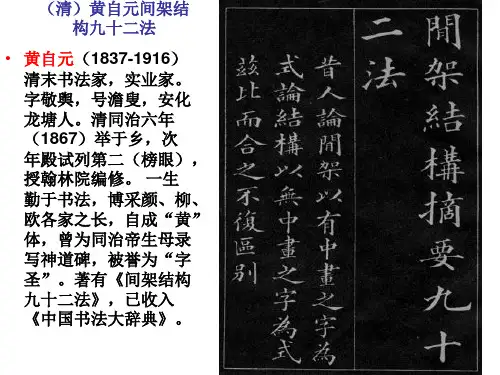 （清）黄自元间架结
构九十二法
• 黄自元（1837-1916）
清末书法家，实业家。
字敬舆，号澹叟，安化
龙塘人。清同治六年
（1867）举于乡，次
年殿试列第二（榜眼），
授翰林院编修。 一生
勤于书法，博采颜、柳、
欧各家之长，自成“黄”
体，曾为同治帝生母录
写神道碑，被誉为“字
圣”。著有《间架结构
九十二法》，已收入
《中国书法大辞典》。
間架結構摘要九十
二法
昔人論間架以有中畫之字為
式論結構以無中畫之字為式
茲比而合之不復區别